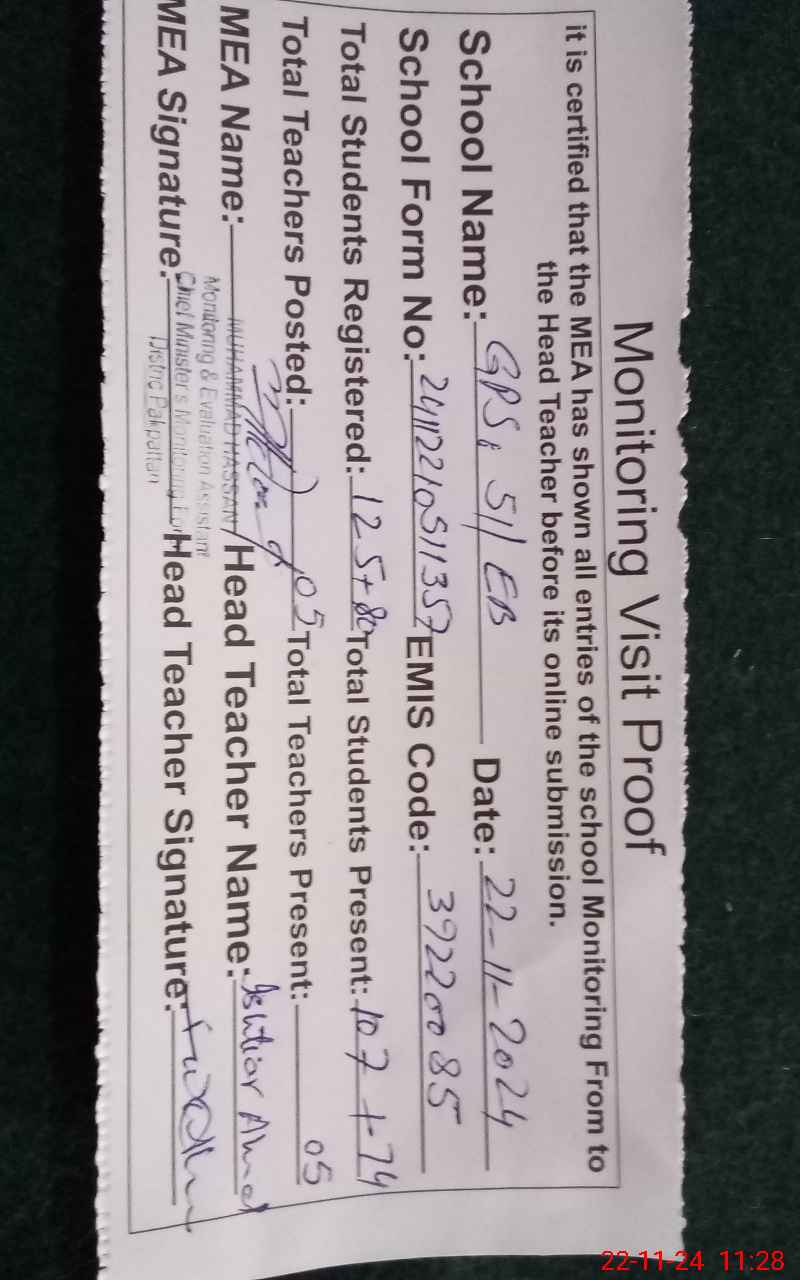 Monitoring Visit Proof
it is certified that the MEA has shown all entries of the school Monitoring From to
the Head Teacher before its online submission.
School Name: GPS, 51/EB Date: 22-11-2024
School Form No: 24112210511357 EMIS Code: 39220085
Total Students Registered: 125+80 Total Students Present: 107+74
Total Teachers Posted: 05 Total Teachers Present: 05
MEA Name: MUHAMMAD HASSAN Head Teacher Name: Ahmed
Monitoring & Evaluation Assistant
MEA Signature: Chief Minister's Monitoring Head Teacher Signature:
District Pakpattan
22-11-24 11:28